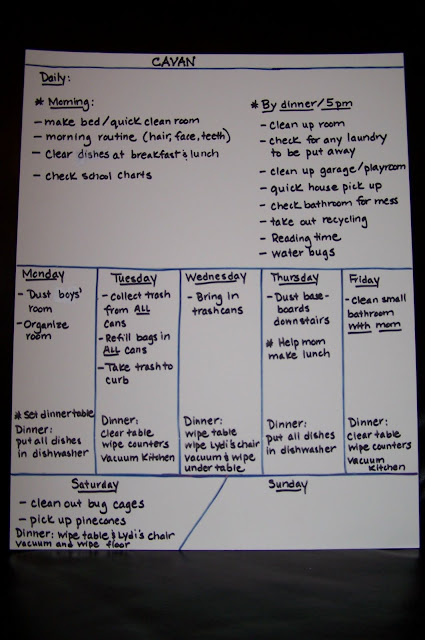 CAVAN
Daily:
* Morning:
- make bed/quick clean room
- morning routine (hair, face, teeth)
- Clear dishes at breakfast & lunch
- check school charts
* By dinner/5pm
- Clean up room
- check for any laundry
to be put away
- clean up garage/playroom
- quick house pick up
- check bathroom for mess
- take out recycling
- Reading time
- water bugs
Monday
- Dust boys'
room
- Organize
room
* Set dinner table
Dinner:
put all dishes
in dishwasher
Tuesday
- Collect trash
from ALL
cans
- Refill bags in
ALL cans
- Take trash to
curb
Dinner:
Clear table
wipe counters
vacuum kitchen
Wednesday
- Bring in
trashcans
Dinner:
wipe table
wipe Lydi's chair
vacuum & wipe
under table
Thursday
- Dust base-
boards
downstairs
* Help mom
make lunch
Dinner:
put all dishes
in dishwasher
Friday
- Clean small
bathroom
with mom
Dinner:
Clear table
wipe counters
vacuum
kitchen
Saturday
- clean out bug cages
- pick up pinecones
Dinner: wipe table & Lydi's chair
vacuum and wipe floor
Sunday